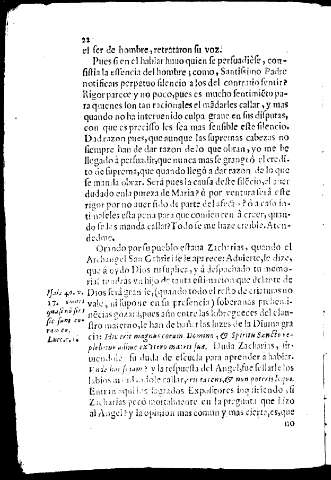 22
el ser de hombre, retrataron su voz.
Pues si en el hablar huuo quien se persuadiesse, con-
sistia la essencia del hombre; como, Santissimo Padre
notificais perpetuo silencio a los del contrario sentir?
Rigor parece y no poco, pues es mucho sentimiẽto pa-
ra quienes son tan racionales el mãdarles callar, y mas
quando no ha interuenido culpa graue en sus disputas,
con que es precisso les sea mas sensible este silencio.
Dad razon pues, que aunque las supremas cabezas no
siempre han de dar razon de lo que obran, yo me he
llegado à persuadir, que nunca mas se grangeò el credi-
to de suprema, que quando llegò a dar razon de lo que
se manda obrar. Serà pues la causa deste silẽcio, el auer
dudado en la pureza de Maria? ò por ventura serà este
rigor por no auer sido de parte del
esta pena para que comiencen à creer, quan-
do se les manda callar? Todo se me haze creible. Aten-
dedme.
Orando por su pueblo estaua Zacharias, quando el
Archangel San Gabriel se le aparece: Aduierte, le dize,
que à oydo Dios tu suplica, y à despachado tu memo-
rial tendras vn hijo de tanta estimacion que delante de
Dios serà grande, (quando todo el resto de criaturas no
vale, ni supone en su presencia) soberanas premi-
nẽcias gozarà, pues aun entre las lobregueces del claus-
tro materno, le han de bañar las luzes de la Diuina gra-
cia: Hic erit magnus coram Domino, & Spiritu Sancto re-
plebitur adhuc ex vtero matris suæ. Duda Zacharias, sir-
uiendole su duda de escuela para aprender a hablar.
Vnde hoc sciam? y la respuesta del Angel, fue sellarle los
labios mandandole callar, eris tacens, & non poteris loqui.
Entran aqui los sagrados Expositores inquiriendo, si
Zacharias pecò mortalmente en la pregunta que hizo
al Angel? y la opinion mas comun y mas cierta, es, que
no